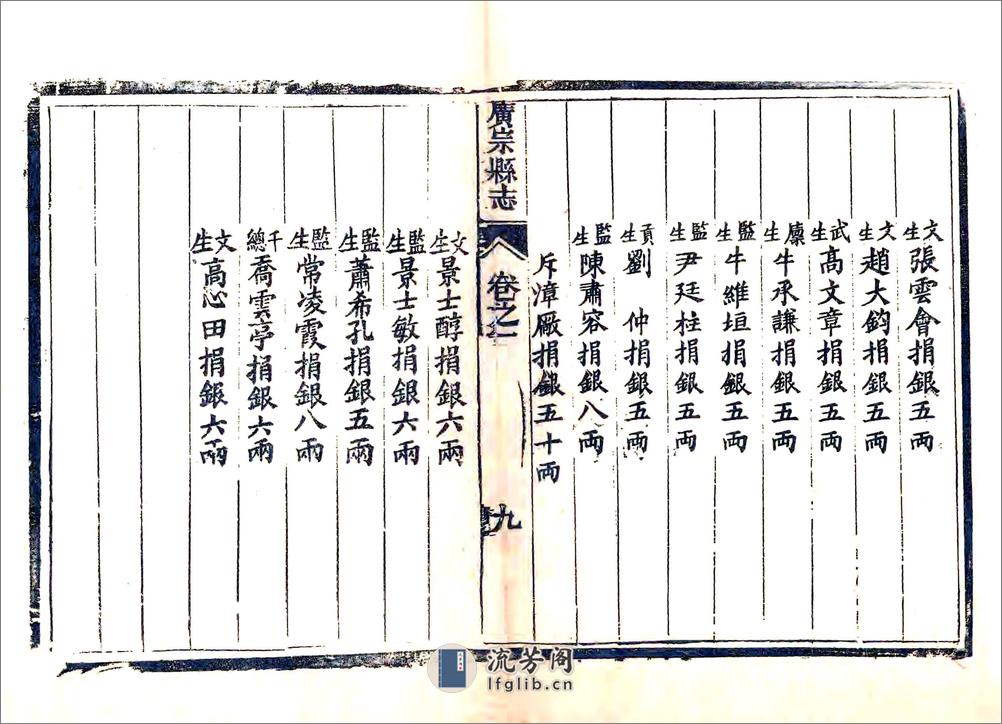 文生張雲會捐銀五両
文生趙大鈞捐銀五両
武生髙文章捐銀五両
廩生牛承謙捐銀五両
監生牛維垣捐銀五両
監生尹廷柱捐銀五両
貢生劉仲捐銀五両
監生陳肅容捐銀八両
斥漳厰捐銀五十両
廣宗縣志
卷之一
九
文生景士醇捐銀六兩
監生景士敏捐銀六兩
監生蕭希孔捐銀五兩
監生常凌霞捐銀八兩
千總喬雲亭捐銀六兩
文生高心田捐銀六兩
流芳阁
lfglib.cn